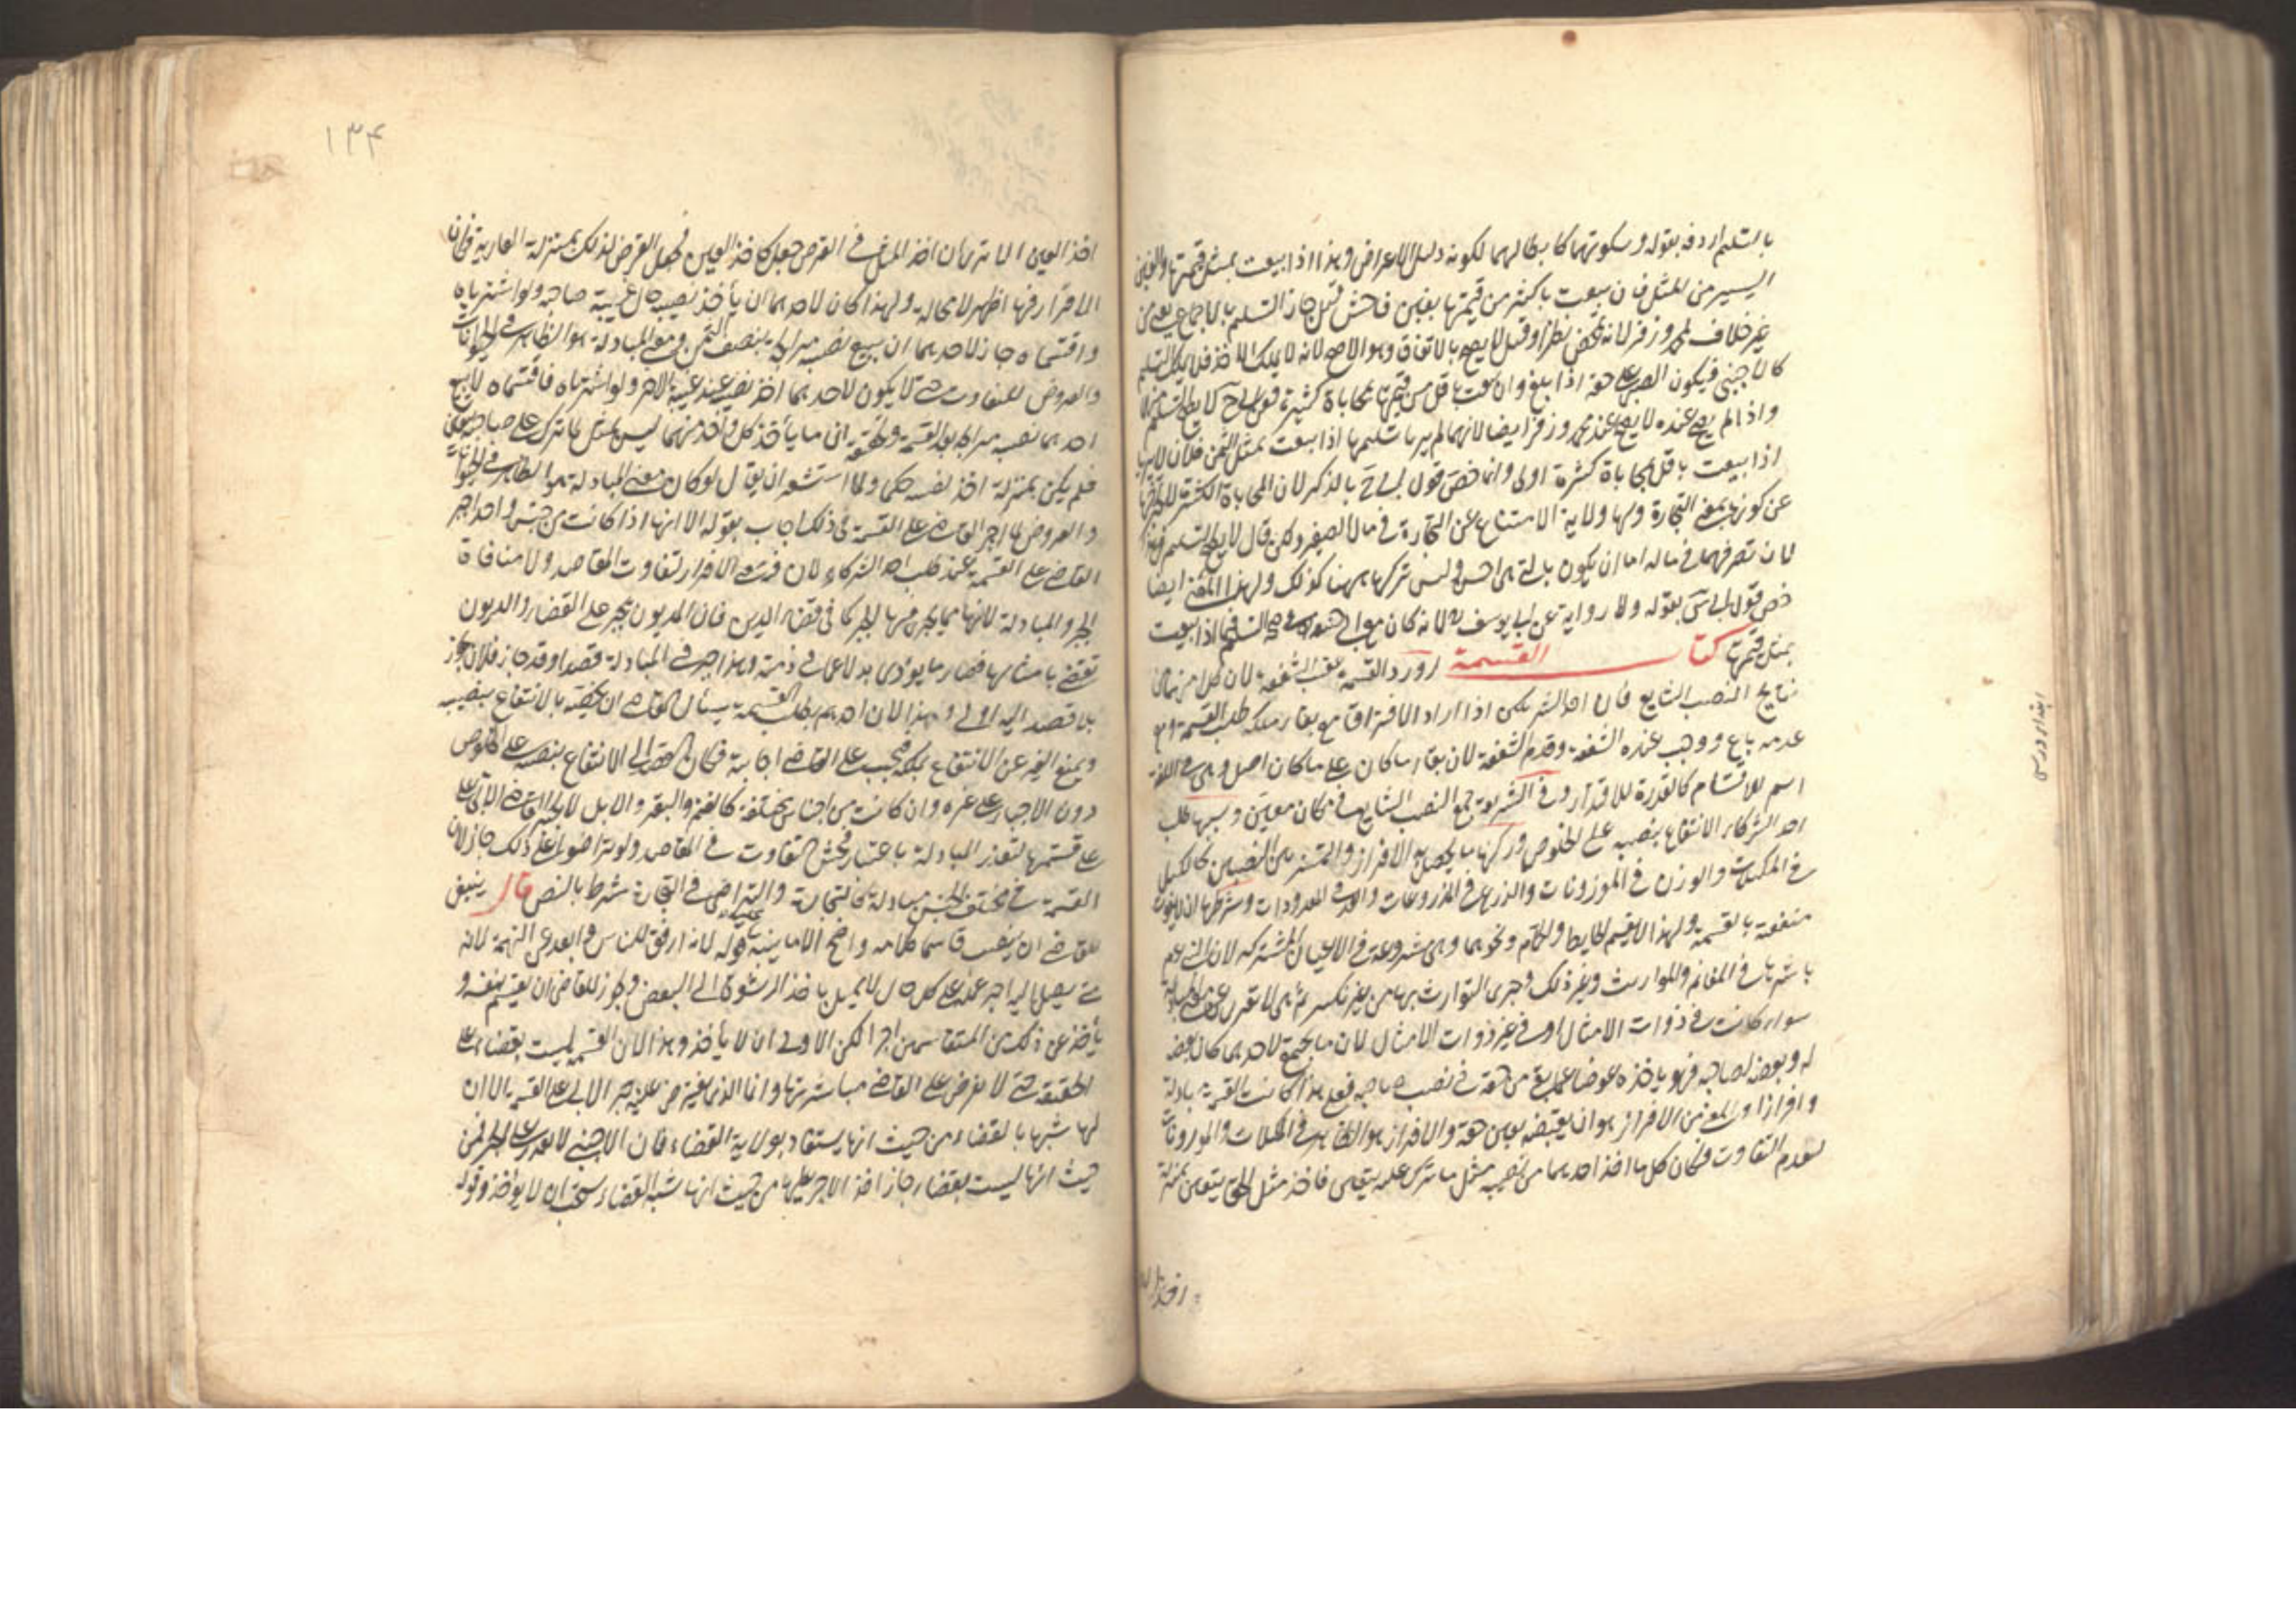 بالتسليم اردفه بقوله وسكوتهما كابطالهما لكونه دليل الاعراض وهذا اذا بيعت بمثل قيمتها والغبن
اليسير من المثل فان بيعت باكثر من قيمتها بغبن فاحش قيل جاز التسليم بالاجماع يعني من
غير خلاف لمحمد وزفر لانه تمحض نظرا وقيل لا يصح بالاتفاق وهو الاصح لانه لا يملك الاخذ فلا يملك التسليم
كالاجنبي فيكون الصبي على حقه اذا بلغ وان بيعت باقل من قيمتها بمحاباة كثيرة فعن ابي ح لا يصح التسليم منهما
واذا لم يصح عنده لا يصح عند محمد وزفر ايضا لانهما لم يريا تسليمها اذا بيعت بمثل الثمن فلان لا يريا
اذا بيعت باقل بمحاباة كثيرة اولى وانما خص قول ابي ح بالذكر لان المحاباة الكثيرة
عن كونها بمعنى التجارة ولها ولاية الامتناع عن التجارة في مال الصغير ولكن قال لا يصح التسليم
لان تصرفهما في ماله اما ان يكون بالتي هي احسن وليس تركها ههنا كذلك ولهذا ايضا
خص قول ابي س بقوله ولا رواية عن ابي يوسف لانه كان مع ابي ح في صحة التسليم فيما اذا بيعت
بمثل قيمتها كتاب القسمة اورد القسمة عقب الشفعة لان كلا من
نتايج النصيب الشايع فان احد الشريكين اذا اراد الافتراق مع بقاء ملكه طلب القسمة ومع
عدمه باع ووجب عنده الشفعة وقدم الشفعة لان بقاء ما كان على ما كان اصل وهي في اللغة
اسم للاقتسام كالقدرة للاقتدار وفي الشريعة جمع النصيب الشايع في مكان معين وسببها طلب
احد الشركاء الانتفاع بنصيبه على الخلوص وركنها ما يحصل به الافراز والتمييز بين النصيبين كالكيل
في المكيلات والوزن في الموزونات والذرع في المذروعات والعد في المعدودات وشرطها ان لا يفوت
منفعة بالقسمة ولهذا لا يقسم الحايط والحمام ونحوهما وهي مشروعة في الاعيان المشتركة لان النبي عم
باشرها في المغانم والمواريث وغير ذلك وجرى التوارث بها من غير نكير ثم هي لا تعرى عن معنى المبادلة
سواء كانت في ذوات الامثال او في غير ذوات الامثال لان ما يجتمع لاحدهما كان بعضه
له وبعضه لصاحبه فهو يأخذه عوضا عما بقي من حقه في نصيب صاحبه فعلى هذا كانت القسمة مبادلة
وافرازا والمعني من الافراز هو ان يقبضه بعين حقه والافراز هو الظاهر في المكيلات والموزونات
لعدم التفاوت فكان كل ما اخذ احدهما من نصيبه مثل ما ترك عليه بيقين فاخذ مثل الحق بيقين بمنزلة
اخذ ال
ابتداء درسى
١٣۴
اخذ العين الا ترى ان اخذ المثل في القرض جعل كاخذ العين فجعل القرض لذلك بمنزلة العارية فكان
الافراز فيها اظهر لا محالة ولهذا كان لاحدهما ان يأخذ نصيبه حال غيبة صاحبه ولو اشترياه
واقتسماه جاز لاحدهما ان يبيع نصيبه مرابحة بنصف الثمن ومعنى المبادلة هو الظاهر في الحيوانات
والعروض للتفاوت حتى لا يكون لاحدهما اخذ نصيبه عند غيبة الاخر ولو اشترياه فاقتسماه لا يبيع
احدهما نصيبه مرابحة بعد القسمة وتحقيقه ان ما يأخذ كل واحد منهما ليس بمثل لما ترك على صاحبه بيقين
فلم يكن بمنزلة اخذ نصيبه حكما ولما استشعر ان يقال لو كان معنى المبادلة هو الظاهر في الحيوانات
والعروض لما اجبر القاضي على القسمة في ذلك اجاب بقوله الا انها اذا كانت من جنس واحد اجبر
القاضي على القسمة عند طلب احد الشركاء لان فيه معنى الافراز لتفاوت المقاصد ولا منافاة
الجبر والمبادلة لانها مما يجري فيها الجبر كما في قضاء الدين فان المديون يجبر على القضاء والديون
تقضى بامثالها فصار ما يؤدى بدلا عما في ذمته وهذا جبر في المبادلة قصدا وقد جاز فلان يجوز
بلا قصد اليه اولى وهذا لان احدهم بطلب القسمة يسأل القاضي ان يخصه بالانتفاع بنصيبه
ويمنع الغير عن الانتفاع بملكه فيجب على القاضي اجابته فكان القصد الى الانتفاع بنصيبه على الخلوص
دون الاجبار على غيره وان كانت من اجناس مختلفة كالغنم والبقر والابل لا يجبر القاضي الآبي على
على قسمتها لتعذر المبادلة باعتبار فحش التفاوت في المقاصد ولو تراضوا على ذلك جاز لان
القسمة في مختلف الجنس مبادلة كالتجارة والتراضي في التجارة شرط بالنص قال ينبغي
للقاضي ان ينصب قاسما كلامه واضح الا ما ننبه عليه قوله لانه ارفق للناس وابعد عن التهمة لانه
متى يصل اليه اجر عمله على كل حال لا يميل باخذ الرشوة الى البعض ويجوز للقاضي ان يقسم بنفسه و
يأخذ عن ذلك من المتقاسمين اجرا لكن الاولى ان لا يأخذ وهذا لان القسمة ليست بقضاء على
الحقيقة حتى لا يفرض على القاضي مباشرتها وانما الذي يفترض عليه جبر الآبي على القسمة الا ان
لها شبها بالقضاء من حيث انها يستفاد بولاية القضاء فان الاجنبي لا يقدر على الجبر فمن
حيث انها ليست بقضاء جاز اخذ الاجر عليها ومن حيث انها شبه القضاء يستحب ان لا يؤخذ وقوله